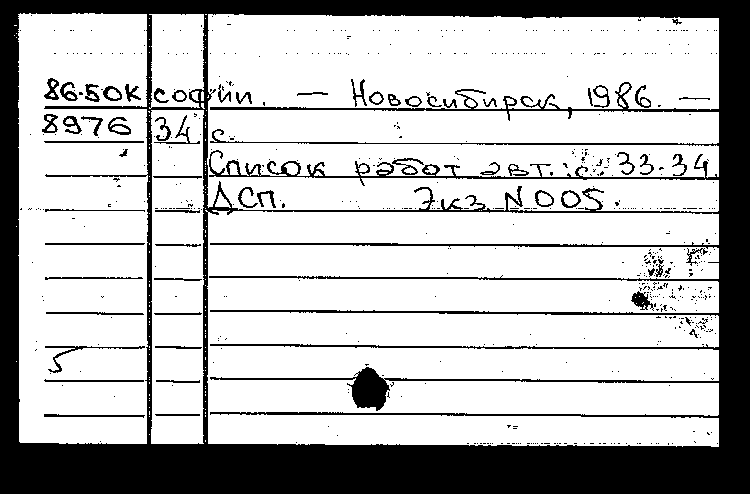 86-50К софии. — Новосибирск, 1986. —
8976 34 с.
Список работ авт.: с. 33-34.
ДСП. Экз. N 005.
5